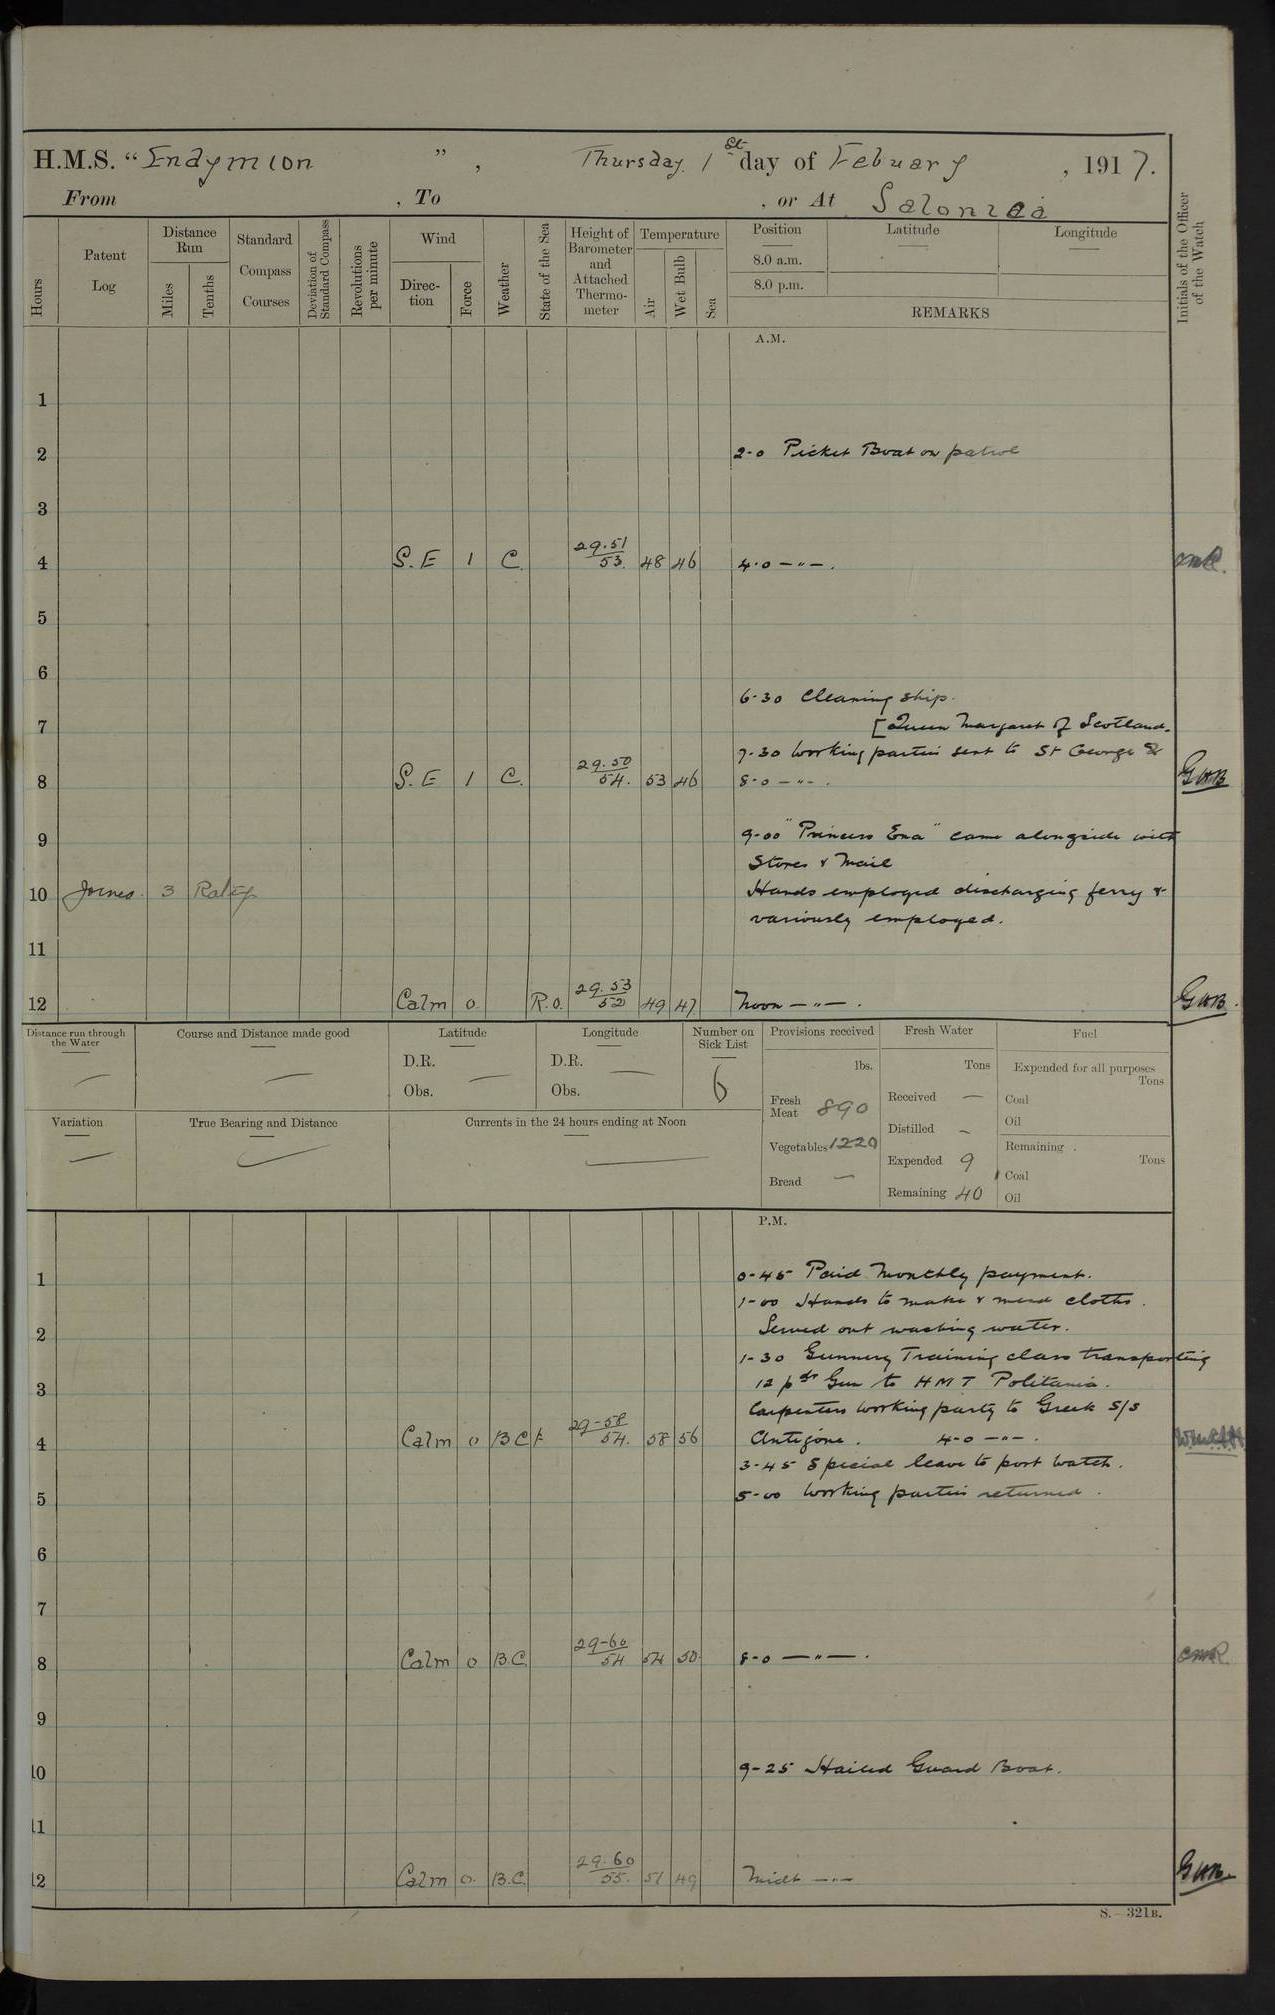 H.M.S. "Endymion", Thursday 1st day of Febuary, 1917.
From , To , or At Salonica
Hours
Patent Log
Distance Run
Miles
Tenths
Standard Compass Courses
Deviation of Standard Compass
Revolutions per minute
Wind
Direction
Force
Weather
State of the Sea
Height of Barometer and Attached Thermometer
Temperature
Air
Wet Bulb
Sea
Position
8.0 a.m.
8.0 p.m.
Latitude
Longitude
REMARKS
Initials of the Officer of the Watch
A.M.
1
2 2-0 Picket Boat on patrol
3
4 S.E 1 C. 29.51 53. 48 46 4.0 —"—.
5
6
6-30 Cleaning ship.
7 [Queen Margaret of Scotland.
7-30 Working parties sent to St George &
8 S.E 1 C. 29.50 54. 53 46 8-0 —"—. GWB
9 9-00 "Princess Ena" came alongside with
Stores & Mail
10 3 Hands employed discharging ferry &
variously employed.
11
12 Calm 0. R.O. 29.53 52 49 47. Noon —"—. GWB.
Distance run through the Water
Course and Distance made good
Latitude
D.R.
Obs.
Longitude
D.R.
Obs.
Number on Sick List
6
Provisions received
lbs.
Fresh Meat 890
Vegetables 1220
Bread —
Fresh Water
Tons
Received —
Distilled —
Expended 9
Remaining 40
Fuel
Expended for all purposes
Tons
Coal
Oil
Remaining
Tons
Coal
Oil
Variation
True Bearing and Distance
Currents in the 24 hours ending at Noon
P.M.
1 0-45 Paid Monthly payment.
1-00 Hands to make & mend cloths.
2 Served out washing water.
1-30 Gunnery Training class transporting
3 12 pdr Gun to HMT Politania.
Carpenters working party to Greek S/S
4 Calm 0 BC 29-58 54. 58 56 Antigone. 4-0 —"—.
3-45 Special leave to port watch.
5 5-00 Working parties returned.
6
7
8 Calm 0 B.C. 29-60 54 54 50. 8-0 —"—.
9
10 9-25 Hailed Guard Boat.
11
12 Calm 0. B.C. 29.60 55. 51 49 Midt —"— GWB
S.—321B.